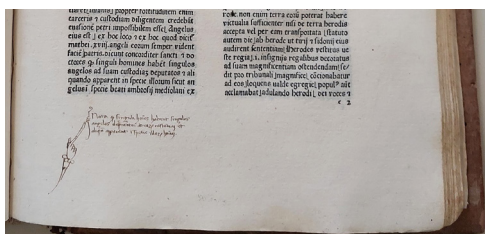 tum iohannis] propter fortitudinem enim
carceris ⁊ custodiam diligentem credebāt
euasionē petri impossibilem esse[. Angelus
eius est] ex hoc loco ⁊ ex hoc quod dicit̄
mathei .xviij. angeli eorum semper vident
faciē patris. dicunt concorditer sancti ⁊ do
ctores q̄ singuli homines habēt singulos
angelos ad suam custodiaz deputatos ⁊ ali
quando apparent in specie illorum sicut an
gelus in specie beati ambrosij mediolani ex
rode. non enim terra eorū poterat habere
victualia sufficienter nisi de terra herodis
accepta vel per eam transportata [statuto
autem die] ab herode vt tirij ⁊ sidonij eius
audirent sententiam [herodes vestitus ve
ste regia] .i. insignijs regalibus decoratus
ad suam magnificentiam ostendendam [se
dit pro tribunali] magnifice[ ⁊ cōcionabatur
ad eos] loquens valde egregie[ populꝰ autē
acclamabat] adulando herodi[ dei voces ⁊
c 2
Nota q̄ singuli homines habent singulos
angelos